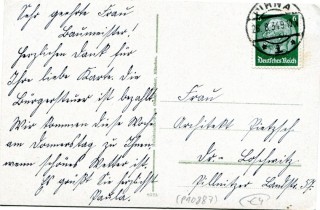 Sehr geehrte Frau
Baumeister!
Herzlichen Dank für
Ihre liebe Karte. Die
Bürgersteuer ist bezahlt.
Wir kommen diese Woche
am Donnerstag zu Ihnen,
wenn schönes Wetter ist.
Es grüßt Sie herzlichst
Paula.
PIRNA
6
Deutsches Reich
Frau
Architekt Pietzsch
Dr.- Loschwitz
Pillnitzer Landstr. 59.